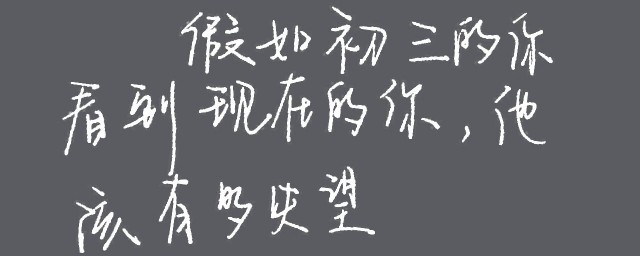 假如初三的你
看到现在的你，他
该有多失望